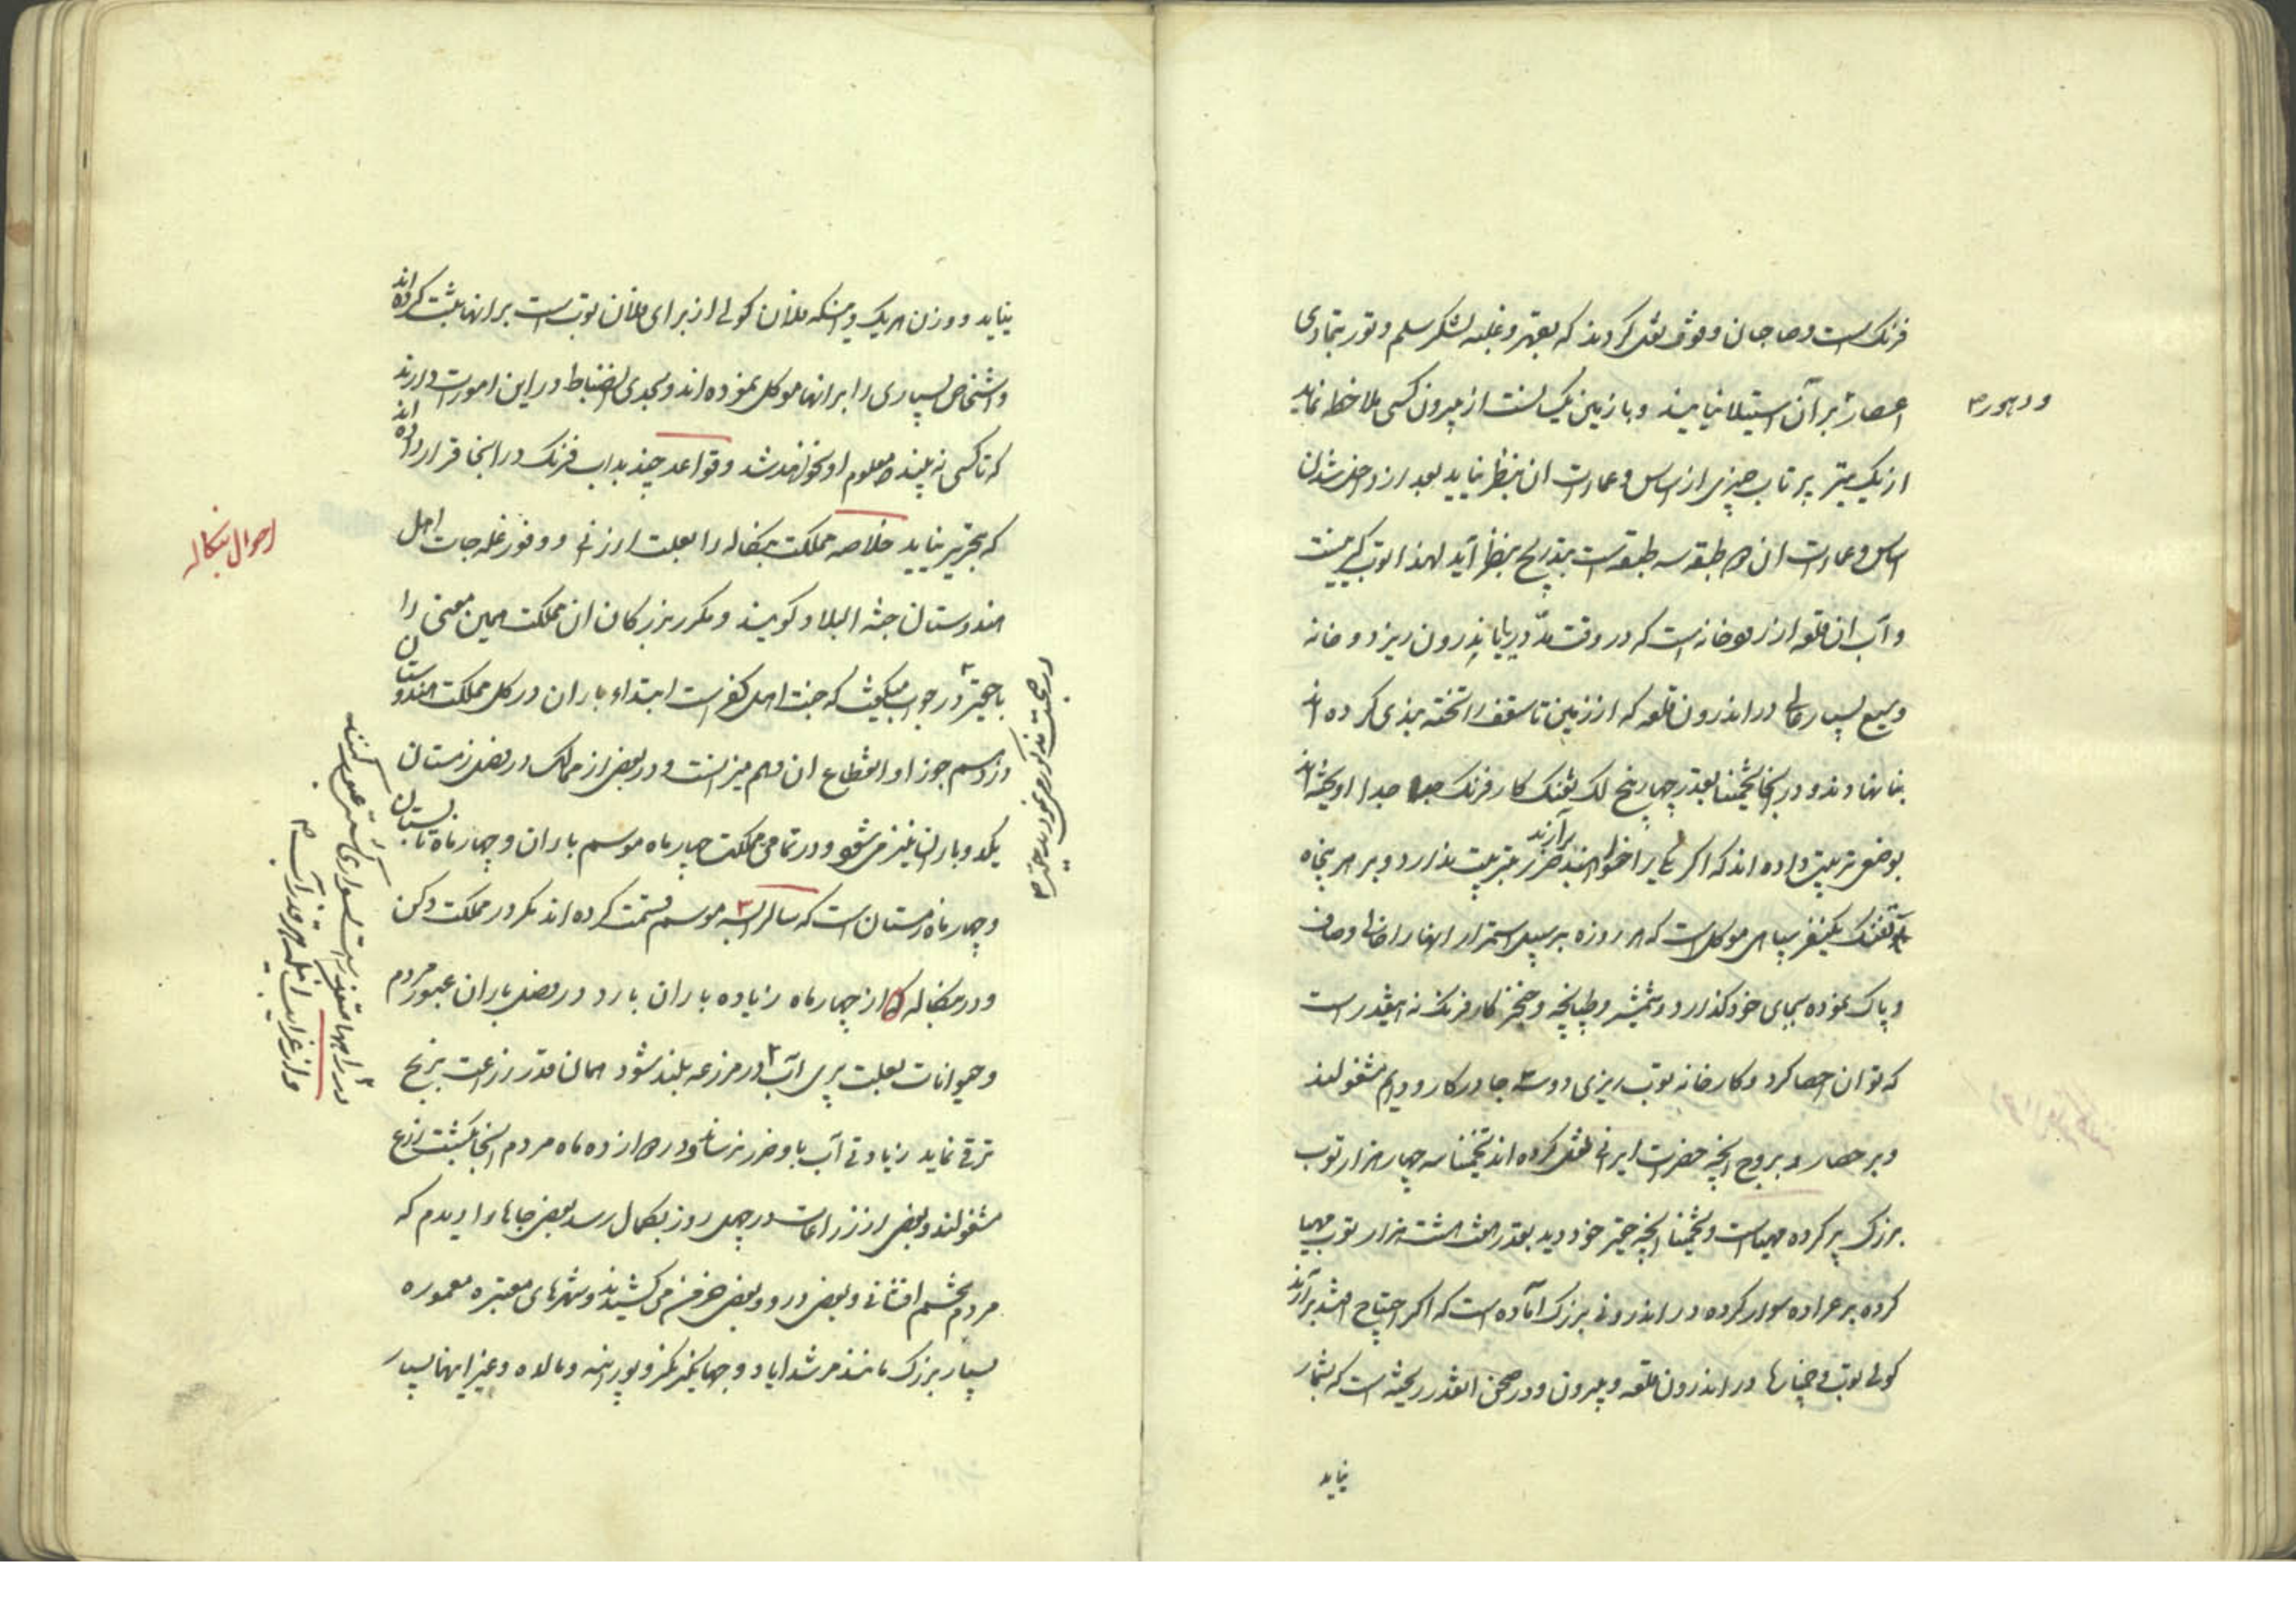 فرنک است و صاحبان وقوف نقل کردند که بقهر و غلبه لشکر سلم و تور بتمادی
اعصار بر آن استیلا نیابند و با زمین یک لخت از بیرون کسی ملاحظه نماید
و دهور
از یک تیر پرتاب چیزی از اساس و عمارت ان بنظر نیاید بعد از داخل شدن
اساس و عمارت ان که طبقه سه طبقه است بتدریج بنظر آید لهذا توب گیر نیست
و آب ان قلعه از رودخانه است که در وقت مدّ دریا باندرون ریزد و خانه
وسیع بسیار عالی در اندرون قلعه که از زمین تا سقف را تخته بندی کرده اند
بنا نهادند و در انجا تخمینا بقدر چهار پنج لک تفنک کار فرنک جدا جدا اویخته اند
بوضعی ترتیب داده اند که اگر یکی را خواهند برآرند ضرر بترتیب ندارد و بر هر پنجاه
تفنک یکنفر سپاهی موکل است که هر روزه بر سبیل استمرار انها را خالی و صاف
و پاک نموده بجای خود گذارد و شمشیر و طپانچه و خنجر کار فرنک نه انقدر است
که توان احصا کرد و کارخانه توب ریزی دو سه جا در کار و دایم مشغولند
و بر حصار و بروج انچه حضرات ایرانی نقل کرده اند تخمینا سه چهار هزار توب
بزرک پر کرده مهیاست و تخمینا انچه حقیر خود دید بقدر هفت هشت هزار توب مهیا
کرده بر عراده سوار کرده در اندرونی بزرک آماده است که اکر احتیاج افتد برآرند
کولی توب و خپارها در اندرون قلعه و بیرون و در صحن انقدر ریخته است که بشمار
نیاید
نیاید و وزن هر یک و اینکه فلان کولی از برای فلان توب است بر انها ثبت کرده اند
و اشخاص بسیاری را بر انها موکل نموده اند و بحدی انضباط در این امورات دارند
که تا کسی نه بیند معلوم او نخواهد شد و قواعد چند بداب فرنک در انجا قرار داده اند
که بتحریر نیاید خلاصه مملکت بنکاله را بعلت ارزانی و وفور غله جات اهل
احوال بنکاله
هندوستان جنة البلاد کویند و مکرر بزرکان ان مملکت همین معنی را
با حقیر در جواب میکفتند که جنت اهل کفر است ابتداء باران در کل مملکت هندوستان
از موسم جوزا و انقطاع ان دهم میزانست و در بعض از ممالک در فصل زمستان
یکدو باران نیز می شود و در تمامی مملکت چهار ماه موسم باران و چهار ماه تابستان
و چهار ماه زمستان است که سال را بسه موسم قسمت کرده اند مکر در مملکت دکن
و در بنکاله که از چهار ماه زیاده باران بارد در فصل باران عبور مردم
در راهها متعذر است بسواری کشتی عبور کنند
و حیوانات بعلت پری آب در مزرعه بلند شود همان قدر زراعت برنج
و از غرایب اینکه هر قدر آب
ترقی نماید زیادتی آب باو ضرر نرساند و در ده از ده ماه مردم انجا بکشت و زرع
مشغولند و بعض از زراعات در چهل روز بکمال رسد بعض جاها را دیدم که
مردم تخم افشانی و بعض درو و بعض خرمن می کشیدند و شهرهای معتبره معموره
بسیار بزرک مانند مرشداباد و جهانکیر نکر و پورنیه و مالده و غیر اینها بسیار